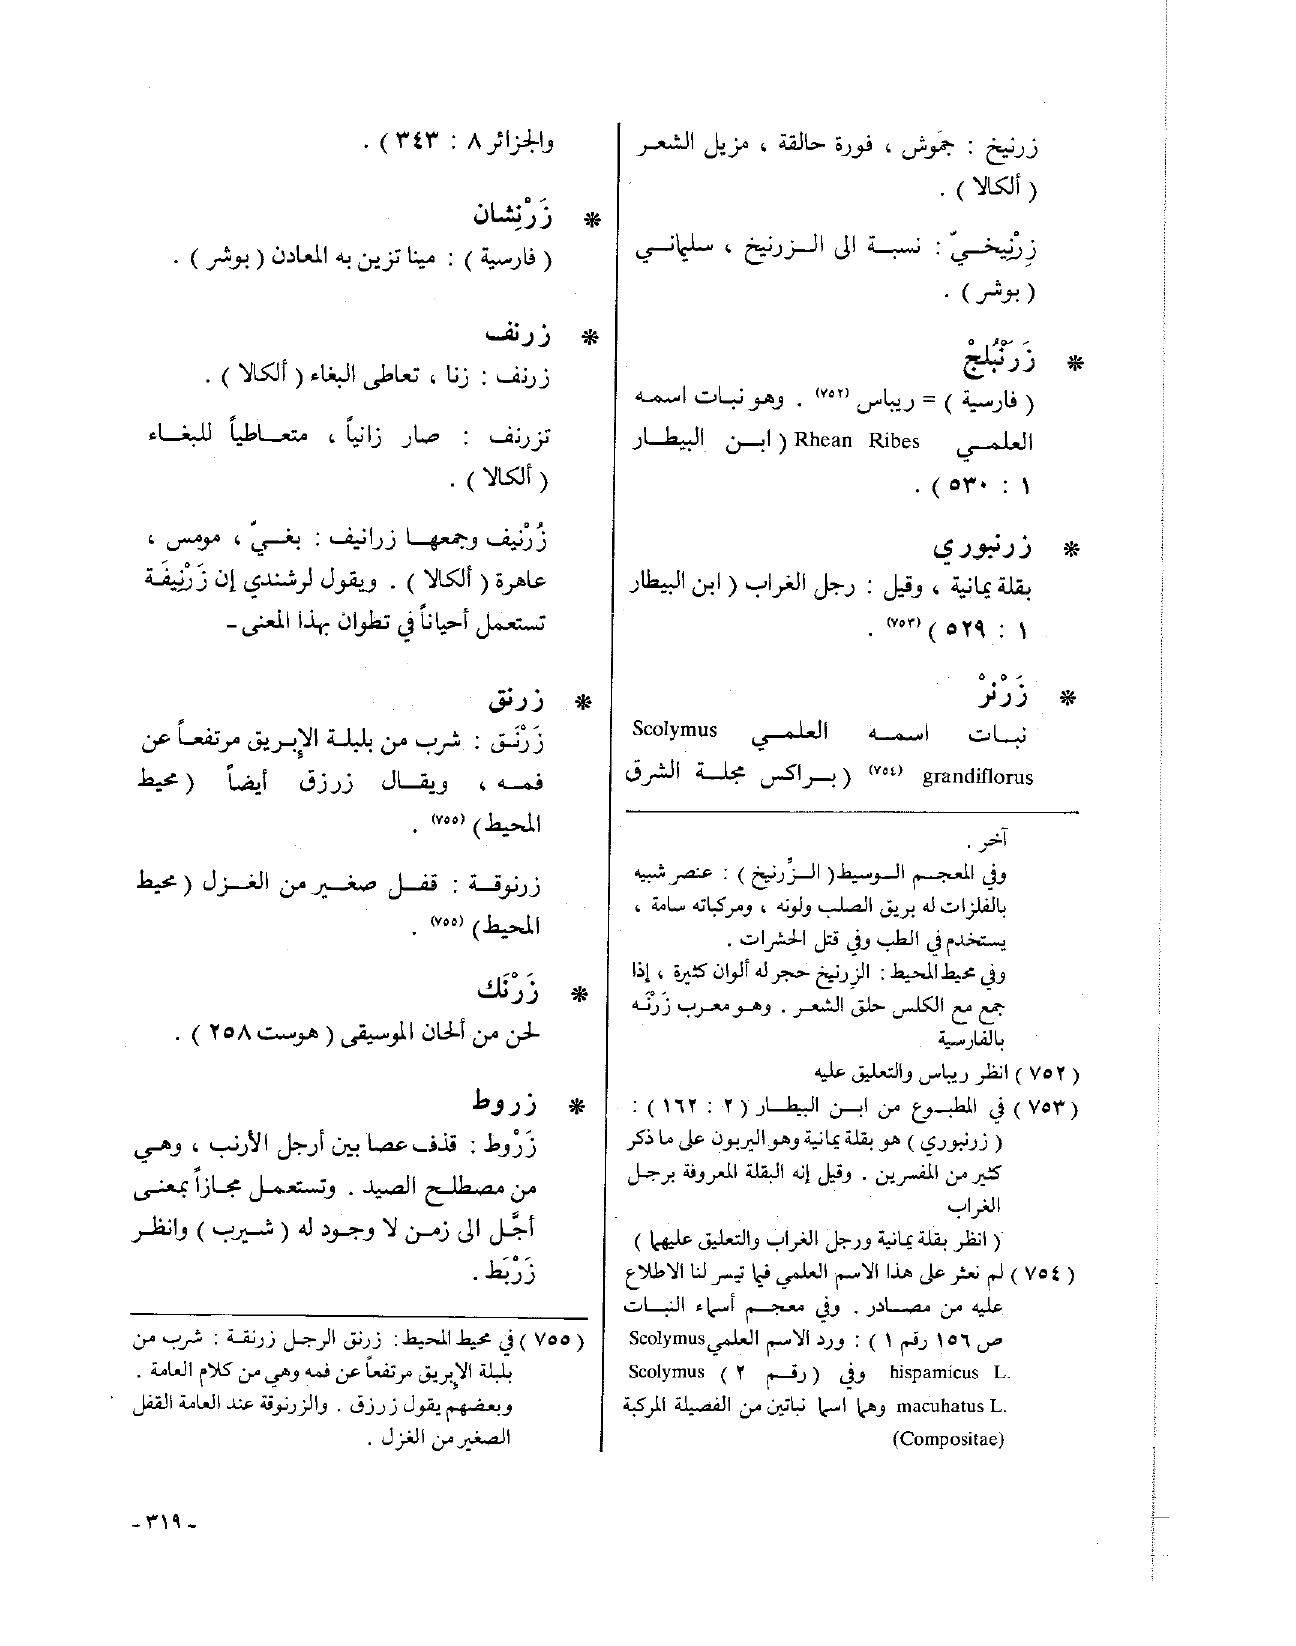 زرنيخ : جَمّوش ، فورة حالقة ، مزيل الشعر
( ألكالا ) .
زِرْنِيخيّ : نسبة الى الزرنيخ ، سليماني
( بوشر ) .
* زَرَنْبُلَج
( فارسية ) = ريباس (٧٥٢) . وهو نبات اسمه
العلمي Rhean Ribes ( ابن البيطار
١ : ٥٣٠ ) .
* زرنبوري
بقلة يمانية ، وقيل : رجل الغراب ( ابن البيطار
١ : ٥٢٩ ) (٧٥٣) .
* زَرْنْزْ
نبات اسمه العلمي Scolymus
grandiflorus (٧٥٤) ( براكس مجلة الشرق
آخر .
وفي المعجم الوسيط ( الزِّرنيخ ) : عنصر شبيه
بالفلزات له بريق الصلب ولونه ، ومركباته سامة ،
يستخدم في الطب وفي قتل الحشرات .
وفي محيط المحيط : الزرنيخ حجر له ألوان كثيرة ، إذا
جمع مع الكلس حلق الشعر . وهو معرب زَرْنَه
بالفارسية
( ٧٥٢ ) انظر ريباس والتعليق عليه
( ٧٥٣ ) في المطبوع من ابن البيطار ( ٢ : ١٦٢ ) :
( زرنبوري ) هو بقلة يمانية وهو اليربون على ما ذكر
كثير من المفسرين . وقيل إنه البقلة المعروفة برجل
الغراب
( انظر بقلة يمانية ورجل الغراب والتعليق عليها )
( ٧٥٤ ) لم نعثر على هذا الاسم العلمي فيما تيسر لنا الاطلاع
عليه من مصادر . وفي معجم أسماء النبات
ص ١٥٦ رقم ١ ) : ورد الاسم العلمي Scolymus
hispamicus L. وفي ( رقم ٢ ) Scolymus
macuhatus L. وهما اسما نباتين من الفصيلة المركبة
(Compositae)
والجزائر ٨ : ٣٤٣ ) .
* زَرْنِشان
( فارسية ) : مينا تزين به المعادن ( بوشر ) .
* زرنف
زرنف : زنا ، تعاطى البغاء ( ألكالا ) .
تزرنف : صار زانياً ، متعاطياً للبغاء
( ألكالا ) .
زُرْنيف وجمعها زرانيف : بغيّ ، مومس ،
عاهرة ( ألكالا ) . ويقول لرشندي إن زَرْنِيفَة
تستعمل أحياناً في تطوان بهذا المعنى -
* زرنق
زَرْنَق : شرب من بلبلة الإبريق مرتفعاً عن
فمه ، ويقال زرزق أيضاً ( محيط
المحيط ) (٧٥٥) .
زرنوقة : قفل صغير من الغزل ( محيط
المحيط ) (٧٥٥) .
* زَرْنَك
لحن من ألحان الموسيقى ( هوست ٢٥٨ ) .
* زروط
زَرْوَط : قذف عصا بين أرجل الأرنب ، وهي
من مصطلح الصيد . وتستعمل مجازاً بمعنى
أجَّل الى زمن لا وجود له ( شيرب ) وانظر
زَرْبَط .
( ٧٥٥ ) في محيط المحيط : زرنق الرجل زرنقة : شرب من
بلبلة الإبريق مرتفعاً عن فمه وهي من كلام العامة .
وبعضهم يقول زرزق . والزرنوقة عند العامة القفل
الصغير من الغزل .
- ٣١٩ -